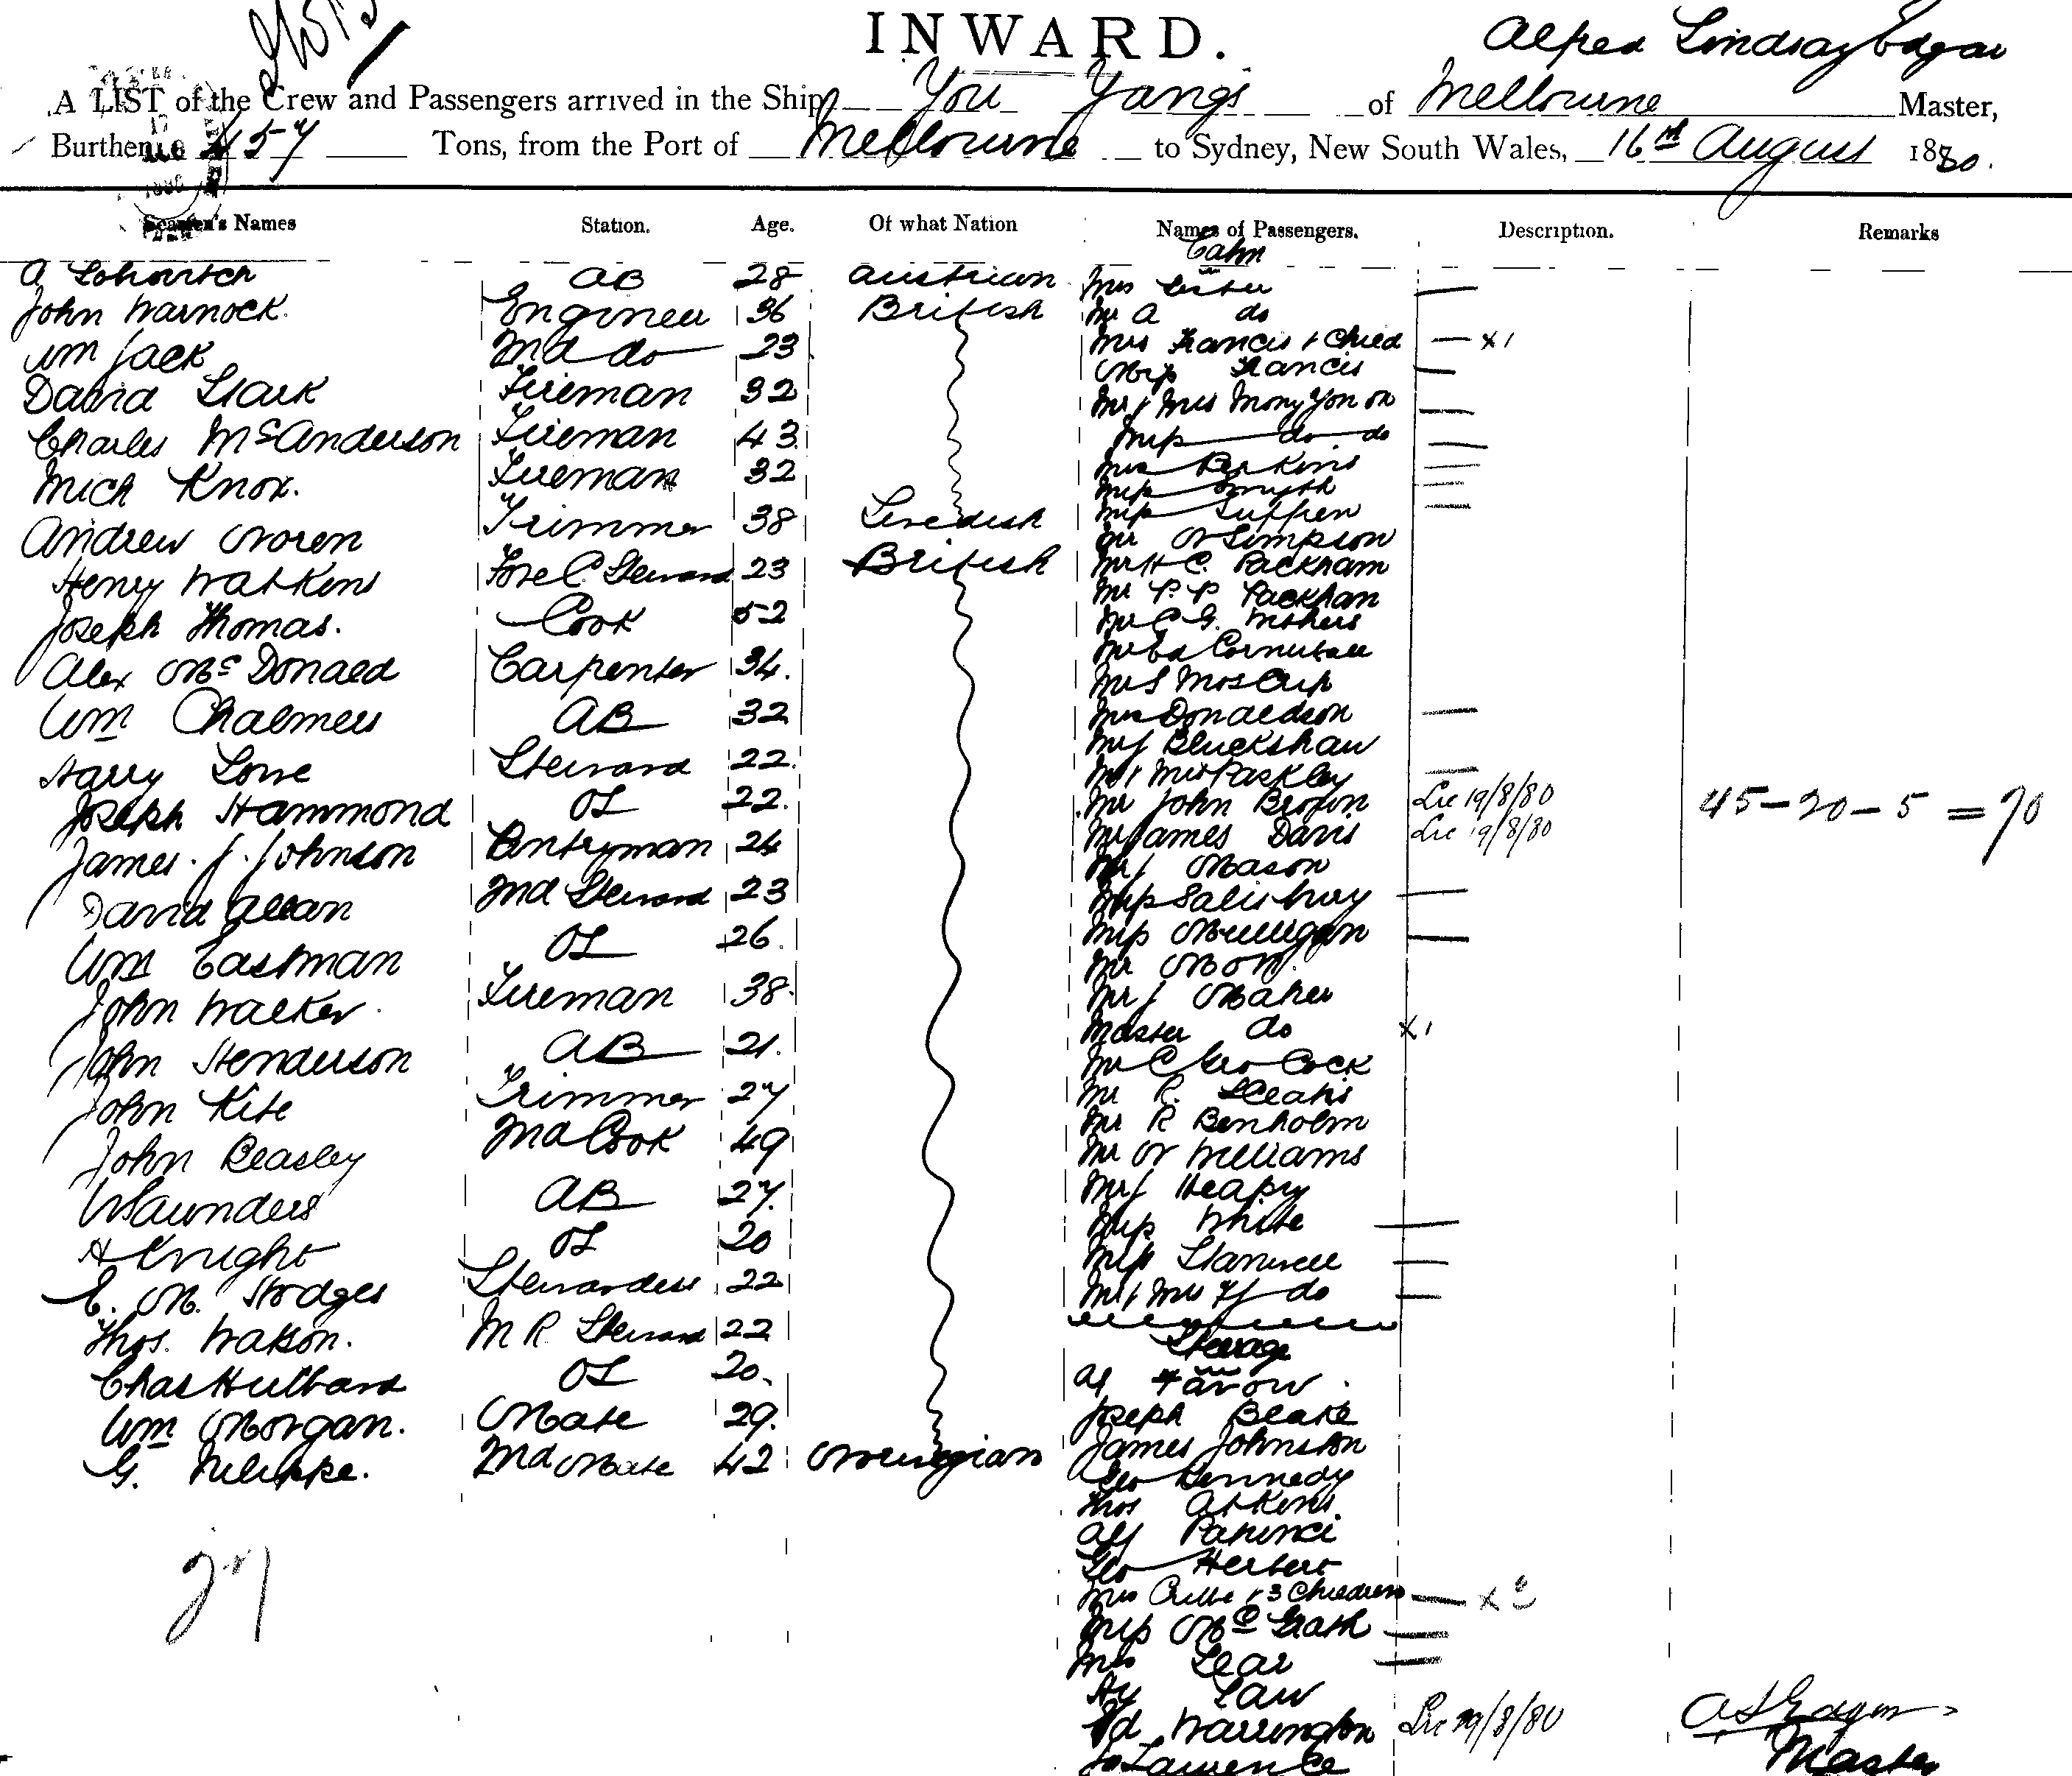 INWARD.
Alfred Lindsay Edgar
A LIST of the Crew and Passengers arrived in the Ship You Yangs of Melbourne Master,
Burthen 457 Tons, from the Port of Melbourne to Sydney, New South Wales, 16th August 1880.
Seamen's Names Station. Age. Of what Nation Names of Passengers. Description. Remarks
Cabin
A AB 28 Austrian Mrs
John Warnock. Engineer 36 British Mr A do
Wm Jack 2nd do 23 Mrs Francis & Child x1
David Stark Fireman 32 Miss Francis
Charles McAnderson Fireman 43 Mr & Mrs
Mich Knox. Fireman 32 Miss do do
Andrew Noren Trimmer 38 Swedish Mrs Perkins
Henry Watkins Fore C. Steward 23 British Miss Smyth
Joseph Thomas. Cook 52 Miss
Alex McDonald Carpenter 34. Mr W Simpson
Wm Chalmers AB 32 Mr H C. Packham
Harry Lowe Steward 22. Mr P. P Packham
Joseph Hammond OS 22. Mr C G.
James. J. Johnson Pantryman 24 Mr Ed
David Allan 2nd Steward 23 Mr S
Wm Eastman OS 26. Mrs Donaldson
John Walker. Fireman 38. Mr J
John Henderson AB 21. Mr & Mrs Paskley
John Kite Trimmer 27 Mr John Brown Lic 19/8/80 45-20-5=70
John Beasley 2nd Cook 49 Mr James Davis Lic 19/8/80
W Saunders AB 27. Mr J Mason
A Knight OS 20 Miss Salisbury
E. M. Hodges Stewardess 22 Miss Mulligan
Thos. Watson. M R Steward 22 Mr
Chas Hulbard OS 20. Mr J Maher
Wm Morgan. Mate 29. Master do x1
G. 2nd Mate 42 Norwegian Mr C Geo Cock
Mr R.
Mr R Benholm
Mr W Williams
Mr J Heapy
Miss White
Miss Stanwell
Mr & Mrs do
Steerage
Joseph Blake
James Johnston
Geo Kennedy
Thos Atkins
Alf
Geo Herbert
27
Mrs & 3 Children x
Miss McGrath
Mrs Lear
Hy Law
Ed Warrington Lic 19/8/80 A L Edgar
Lawrence Master